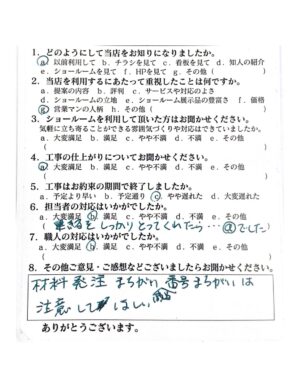 1．どのようにして当店をお知りになりましたか。
ⓐ 以前利用して b. チラシを見て c. 看板を見て d. 知人の紹介
e. ショールームを見て f. HPを見て g. その他（ ）
2．当店を利用するにあたって重視したことは何ですか。
a. 提案の内容 b. 評判 c. サービスや対応のよさ
d. ショールームの立地 e. ショールーム展示品の豊富さ f. 価格
ⓖ 営業マンの人柄 h. その他（ ）
3．ショールームを利用して頂いた方はお聞かせください。
気軽に立ち寄ることができる雰囲気づくりや対応はできていましたか。
a. 大変満足 b. 満足 c. やや不満 d. 不満 e. その他
（ ）
4．工事の仕上がりについてお聞かせください。
ⓐ 大変満足 b. 満足 c. やや不満 d. 不満 e. その他
（ ）
5．工事はお約束の期間で終了しましたか。
a. 予定より早い b. 予定通り ⓒ やや遅れた d. 大変遅れた
6．担当者の対応はいかがでしたか。
a. 大変満足 ⓑ 満足 c. やや不満 d. 不満 e. その他
（ 連絡をしっかりとってくれたら・・・ⓐでした ）
7．職人の対応はいかがでしたか。
a. 大変満足 ⓑ 満足 c. やや不満 d. 不満 e. その他
（ ）
8．その他ご意見・ご感想などございましたらお聞かせください。
材料発注まちがい、番号まちがいは
注意してほしい。
ありがとうございます。